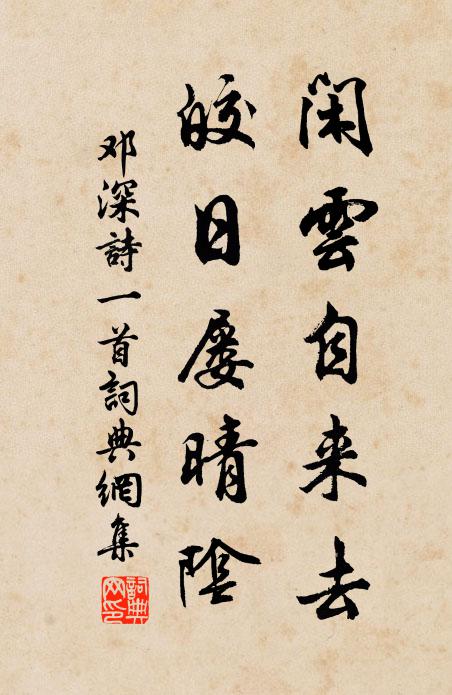 闲雲自来去
皎日屡晴陰
邓深詩一首詞典網集
詞典網印